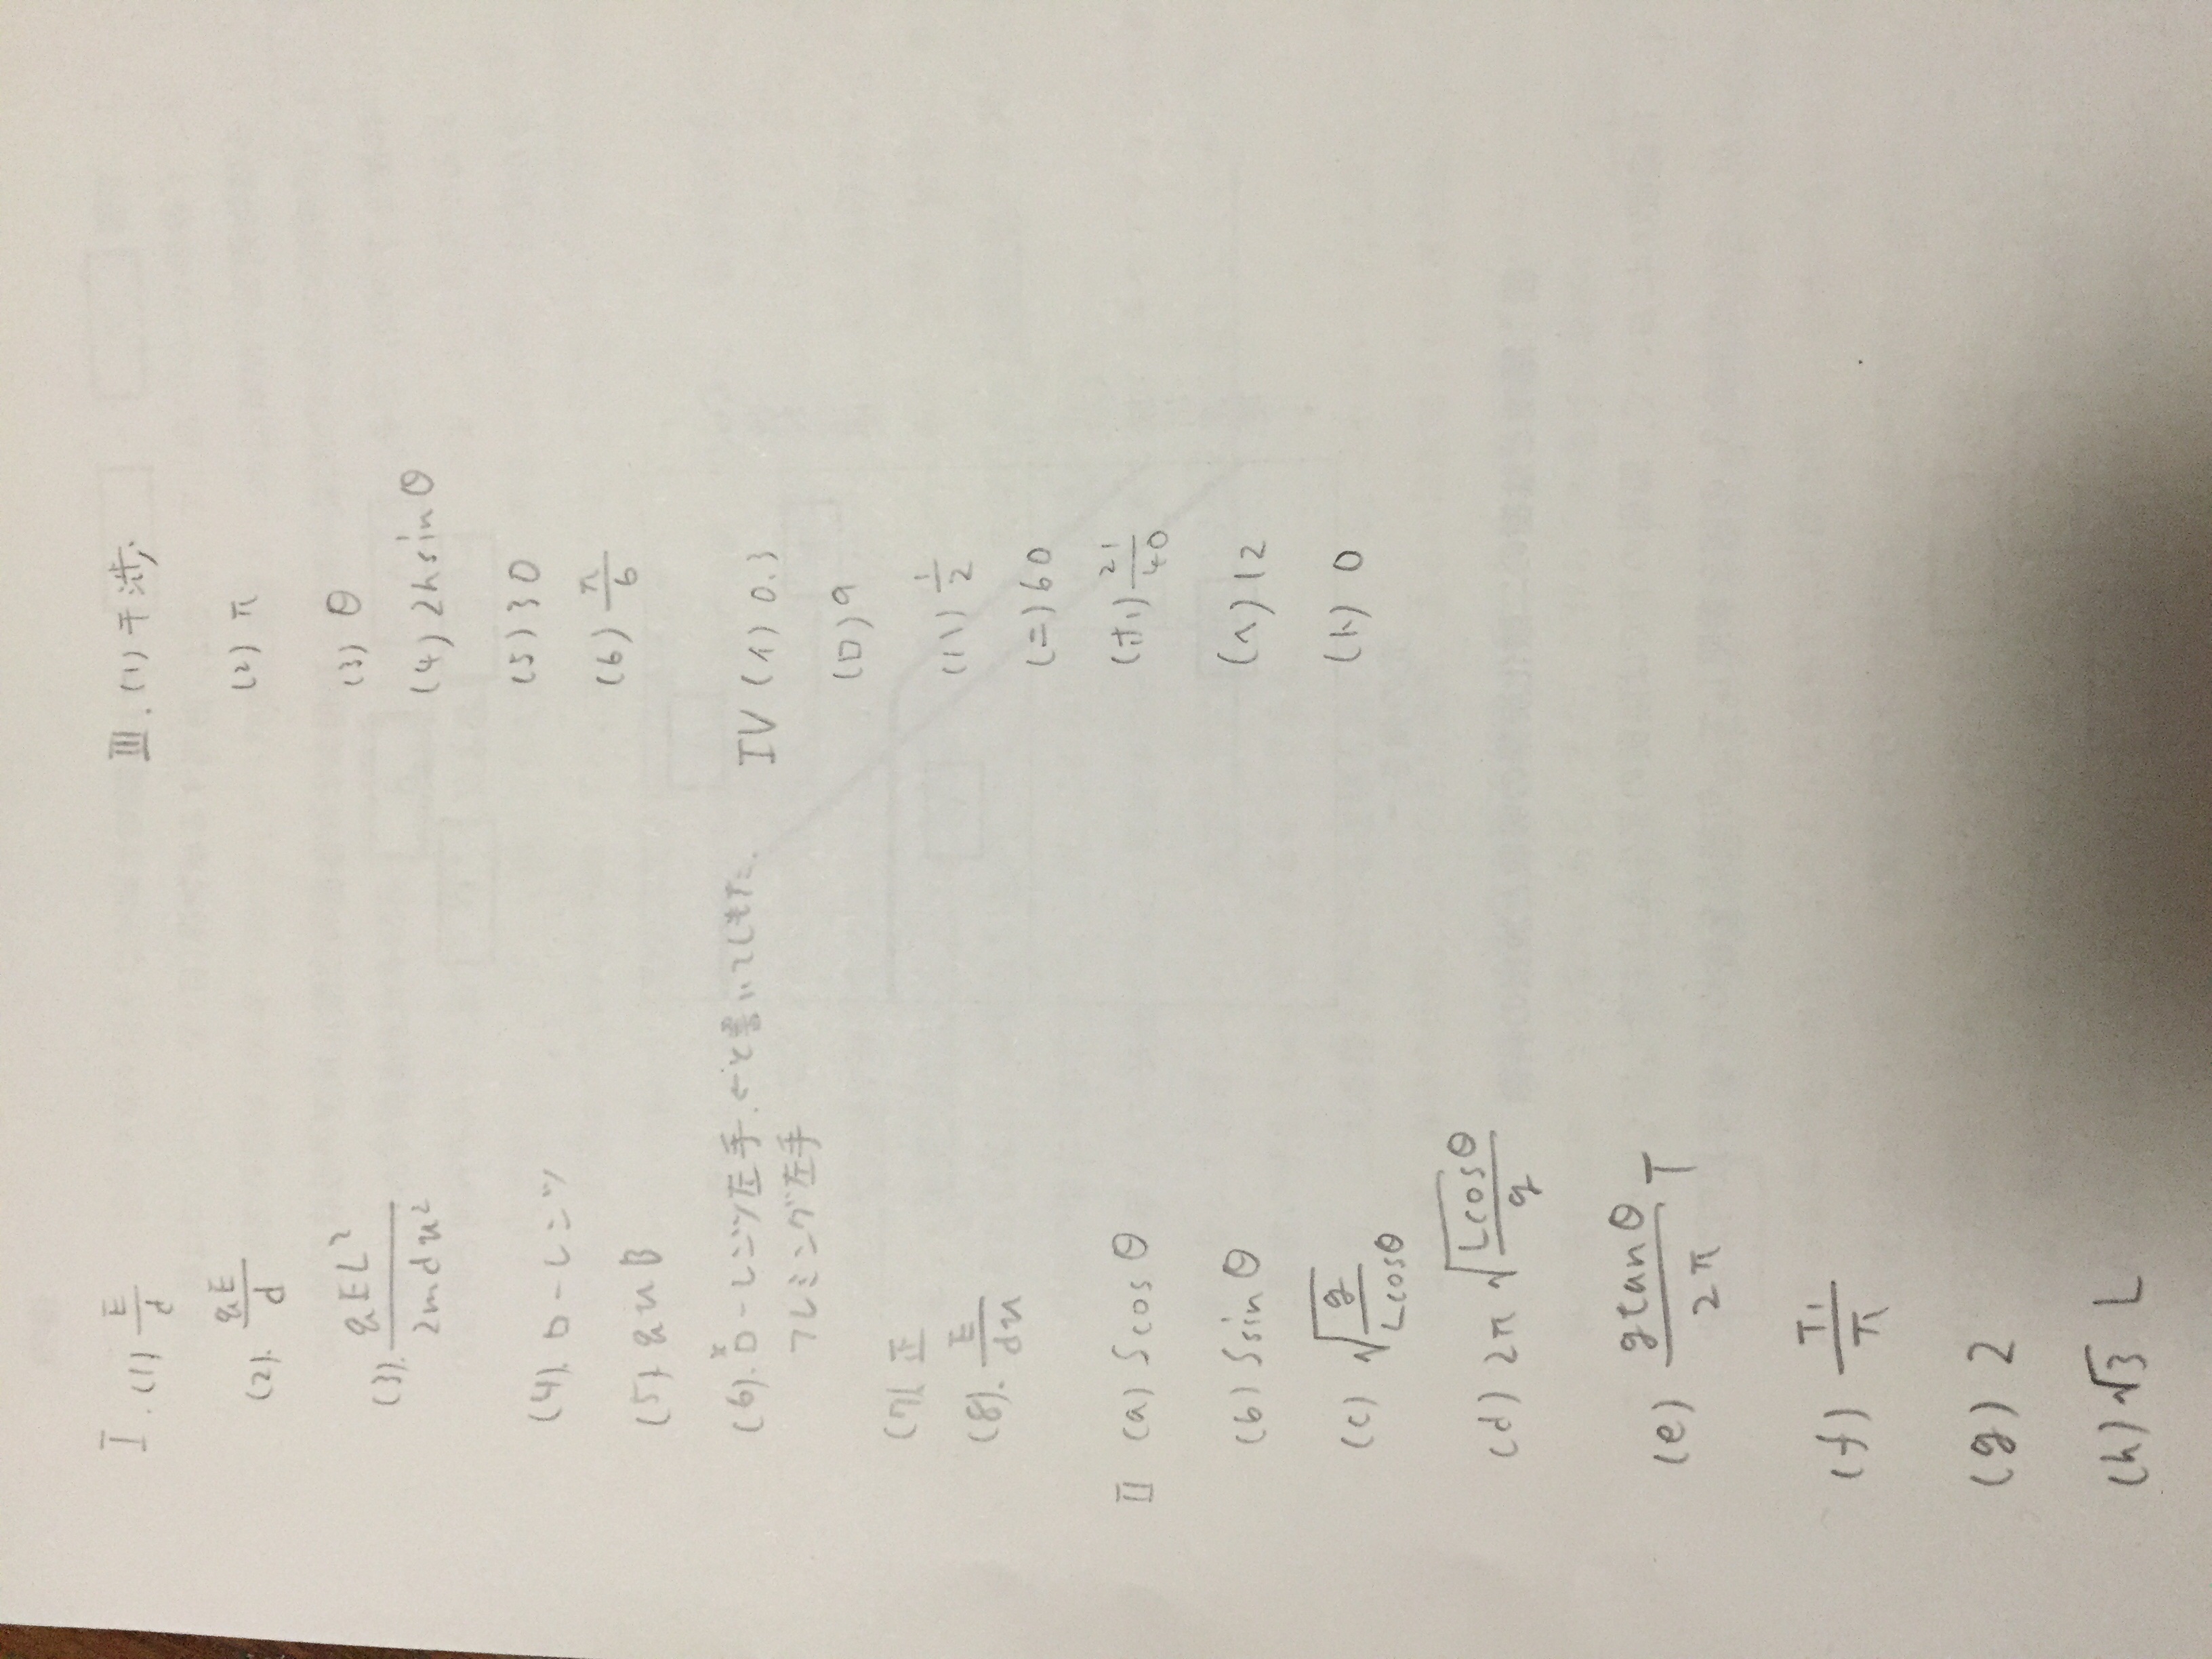 I. (1) E/d
(2). qE/d
(3). qEL²/2mdu²
(4). ローレンツ
(5) quB
(6). ローレンツ左手. ←と書いてしまった.
フレミング左手
(7) 正
(8). E/du
II (a) Scosθ
(b) Ssinθ
(c) √(g/Lcosθ)
(d) 2π√(Lcosθ/g)
(e) gtanθ/2π T
(f)
(g) 2
(h) √3 L
III. (1) 干渉
(2) π
(3) θ
(4) 2hsinθ
(5) 30
(6) π/6
IV (イ) 0.3
(ロ) 9
(ハ) 1/2
(ニ) 60
(ホ) 21/40
(ヘ) 12
(ト) 0